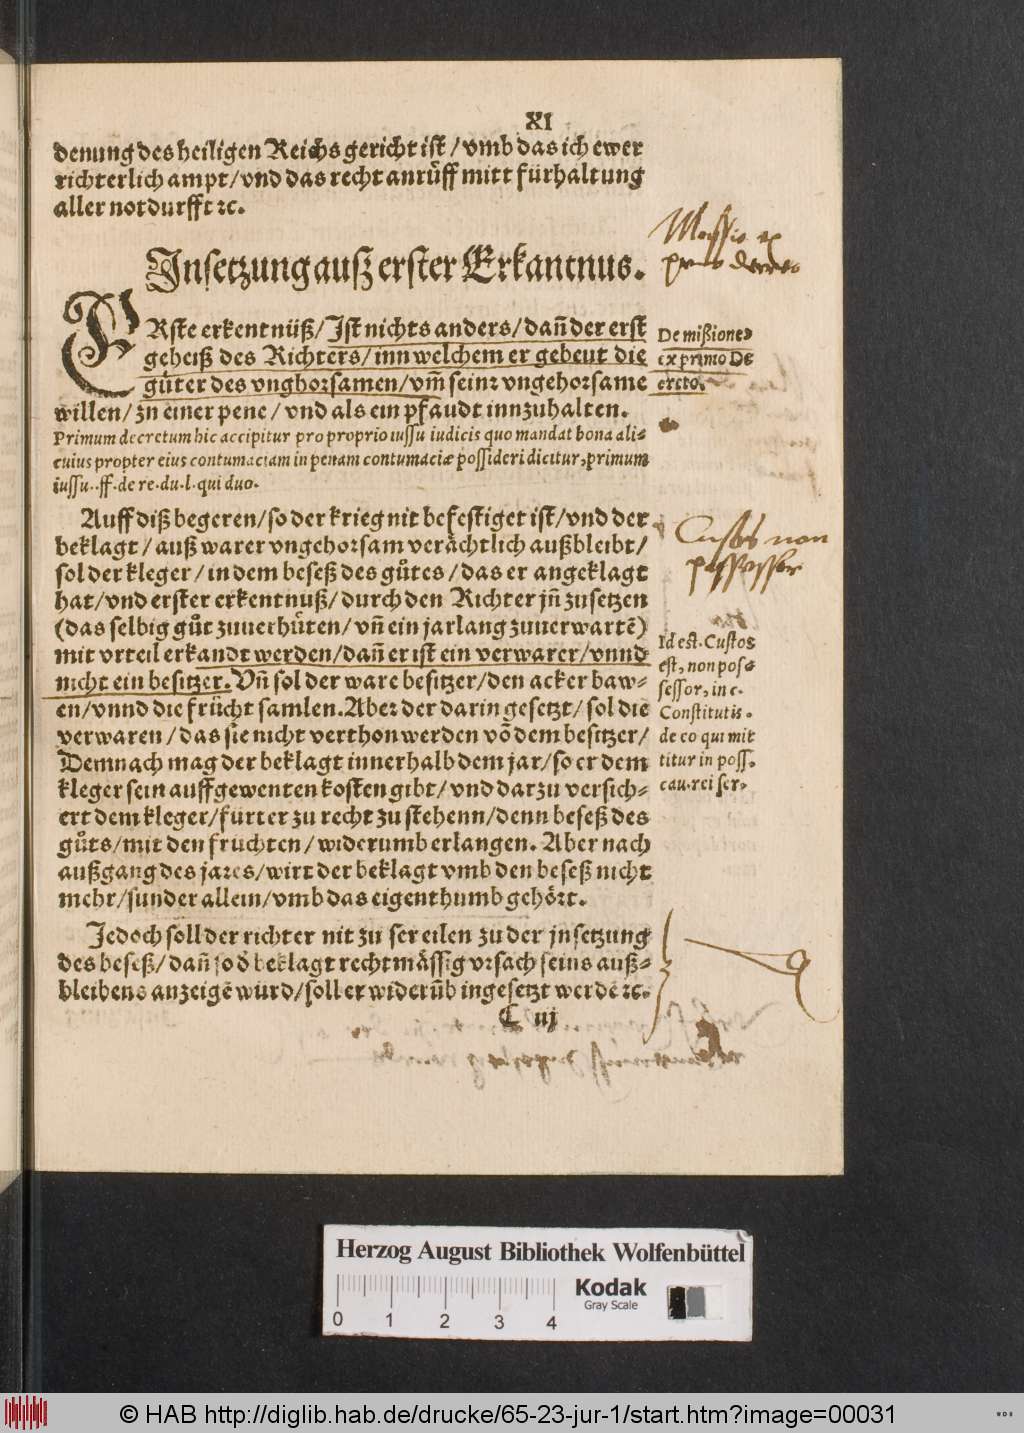 XI
denung des heiligen Reichs gericht ist / vmb das ich ewer
richterlich ampt/vnd das recht anrüff mitt fürhaltung
aller notdurfft ꝛc.
Jnsetzung auß erster Erkantnus.
Missio ex
primo decreto
ERste erkentnüß/Jst nichts anders/dañ der erst
geheiß des Richters/inn welchem er gebeut die
gůter des vnghorsamen/vm̃ seinr vngehorsame
willen/zn einer pene/vnd als ein pfandt innzuhalten.
De mißione
ex primo De
creto.
Primum decretum hic accipitur pro proprio iussu iudicis quo mandat bona ali-
cuius propter eius contumaciam in penam contumaciæ possideri dicitur, primum
iussu..ff.de re.du.l.qui duo.
Auff diß begeren/so der krieg nit befestiget ist/vnd der
beklagt / auß warer vngehorsam verächtlich außbleibt/
sol der kleger / in dem beseß des gůtes / das er angeklagt
hat/vnd erster erkentnuß/durch den Richter jñ zusetzen
(das selbig gůt zuuerhüten/vñ ein jarlang zuuerwartẽ)
mit vrteil erkandt werden/dañ er ist ein verwarer/vnnd
nicht ein besitzer. Vñ sol der ware besitzer/den acker baw-
en/vnnd die frücht samlen. Aber der darin gesetzt/ sol die
verwaren / das sie nicht verthon werden võ dem besitzer/
Demnach mag der beklagt innerhalb dem jar/so er dem
kleger sein auffgewenten kosten gibt/vnd darzu versich-
ert dem kleger/fürter zu recht zu stehenn/denn beseß des
gůts/mit den fruchten / widerumb erlangen. Aber nach
außgang des jares/wirt der beklagt vmb den beseß nicht
mehr/sunder allein/vmb das eigenthumb gehört.
Custos non
possessor
Id est. Custos
est, non pos-
sessor, in c.
Constitutis.
de eo qui mit
titur in poss.
cau.rei ser.
Jedoch soll der richter nit zu ser eilen zu der jnsetzung
des beseß/dañ so d̃ beklagt rechtmässig vrsach seins auß-
bleibens anzeigẽ würd/soll er widerũb ingesetzt werdẽ ꝛc.
C iij
Herzog August Bibliothek Wolfenbüttel
Kodak
Gray Scale
0 1 2 3 4
© HAB http://diglib.hab.de/drucke/65-23-jur-1/start.htm?image=00031